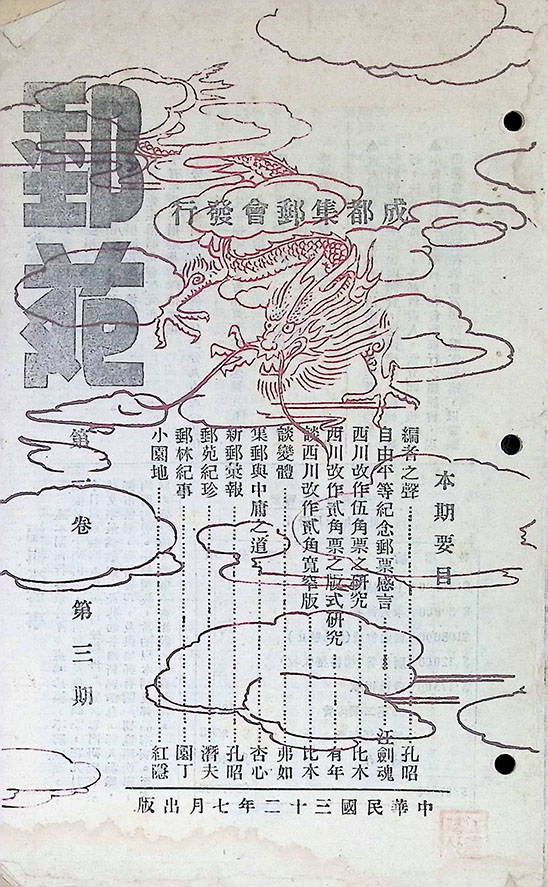 郵苑
成都集郵會發行
本期要目
編者之聲……孔昭
自由平等紀念郵票感言……汪劍魂
西川改作伍角票之研究……比木
西川改作貳角票之版式研究……有年
談西川改作貳角寬窄版……比木
談變體……弗如
集郵與中庸之道……杏心
新郵彙報……孔昭
郵苑紀珍……潛夫
郵林紀事……園丁
小園地……紅隱
第 卷 第三期
中華民國三十二年七月出版